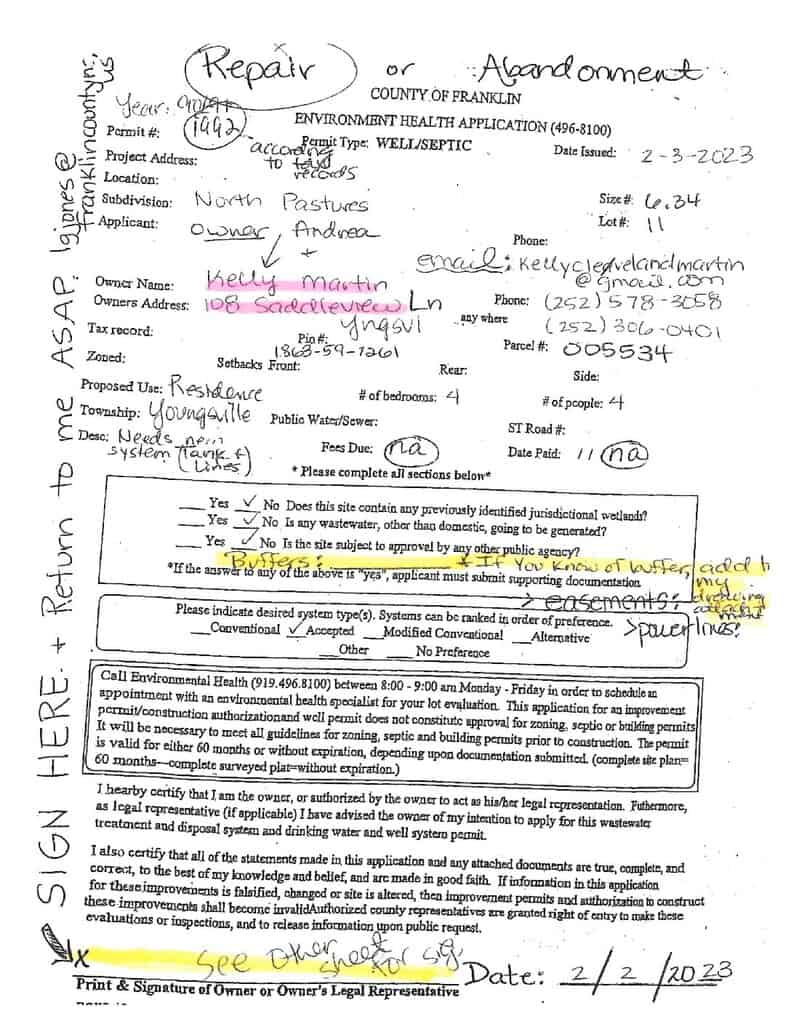 Repair or Abandonment
COUNTY OF FRANKLIN
Year:
ENVIRONMENT HEALTH APPLICATION (496-8100)
Permit #: 1992 Permit Type: WELL/SEPTIC Date Issued: 2-3-2023
according
Project Address: to records
Location:
Subdivision: North Pastures Size#: 6.34
Applicant: Owner, Andrea Lot#: 11
+ Phone:
email: kellyclevelandmartin
@gmail.com
Owner Name: Kelly Martin
Owners Address: 108 Saddleview Ln Phone: (252) 578-3058
Yngsvl any where (252) 306-0401
Tax record: Pin#: 1863-59-7261 Parcel #: 005534
Zoned: Setbacks Front: Rear: Side:
Proposed Use: Residence # of bedrooms: 4 # of people: 4
Township: Youngsville Public Water/Sewer: ST Road #:
Desc: Needs new Fees Due: na Date Paid: 11 na
system (tank +
lines)
* Please complete all sections below*
___Yes ✓ No Does this site contain any previously identified jurisdictional wetlands?
___Yes ✓ No Is any wastewater, other than domestic, going to be generated?
___Yes ✓ No Is the site subject to approval by any other public agency?
Buffers: ________ * If you know of buffer, add to
my
drawing
*If the answer to any of the above is "yes", applicant must submit supporting documentation
> easements:
Please indicate desired system type(s). Systems can be ranked in order of preference.
> powerlines?
___Conventional ✓ Accepted ___Modified Conventional ___Alternative
___Other ___No Preference
Call Environmental Health (919.496.8100) between 8:00 - 9:00 am Monday - Friday in order to schedule an
appointment with an environmental health specialist for your lot evaluation. This application for an improvement
permit/construction authorizationand well permit does not constitute approval for zoning, septic or building permits
It will be necessary to meet all guidelines for zoning, septic and building permits prior to construction. The permit
is valid for either 60 months or without expiration, depending upon documentation submitted. (complete site plan=
60 months---complete surveyed plat=without expiration.)
I hearby certify that I am the owner, or authorized by the owner to act as his/her legal representation. Futhermore,
as legal representative (if applicable) I have advised the owner of my intention to apply for this wastewater
treatment and disposal system and drinking water and well system permit.
I also certify that all of the statements made in this application and any attached documents are true, complete, and
correct, to the best of my knowledge and belief, and are made in good faith. If information in this application
for these improvements is falsified, changed or site is altered, then improvement permits and authorization to construct
these improvements shall become invalidAuthorized county representatives are granted right of entry to make these
evaluations or inspections, and to release information upon public request.
X See other sheet for sig. Date: 2/2/2023
Print & Signature of Owner or Owner's Legal Representative
SIGN HERE. + Return to me ASAP. lgjones@
franklincountync.
us